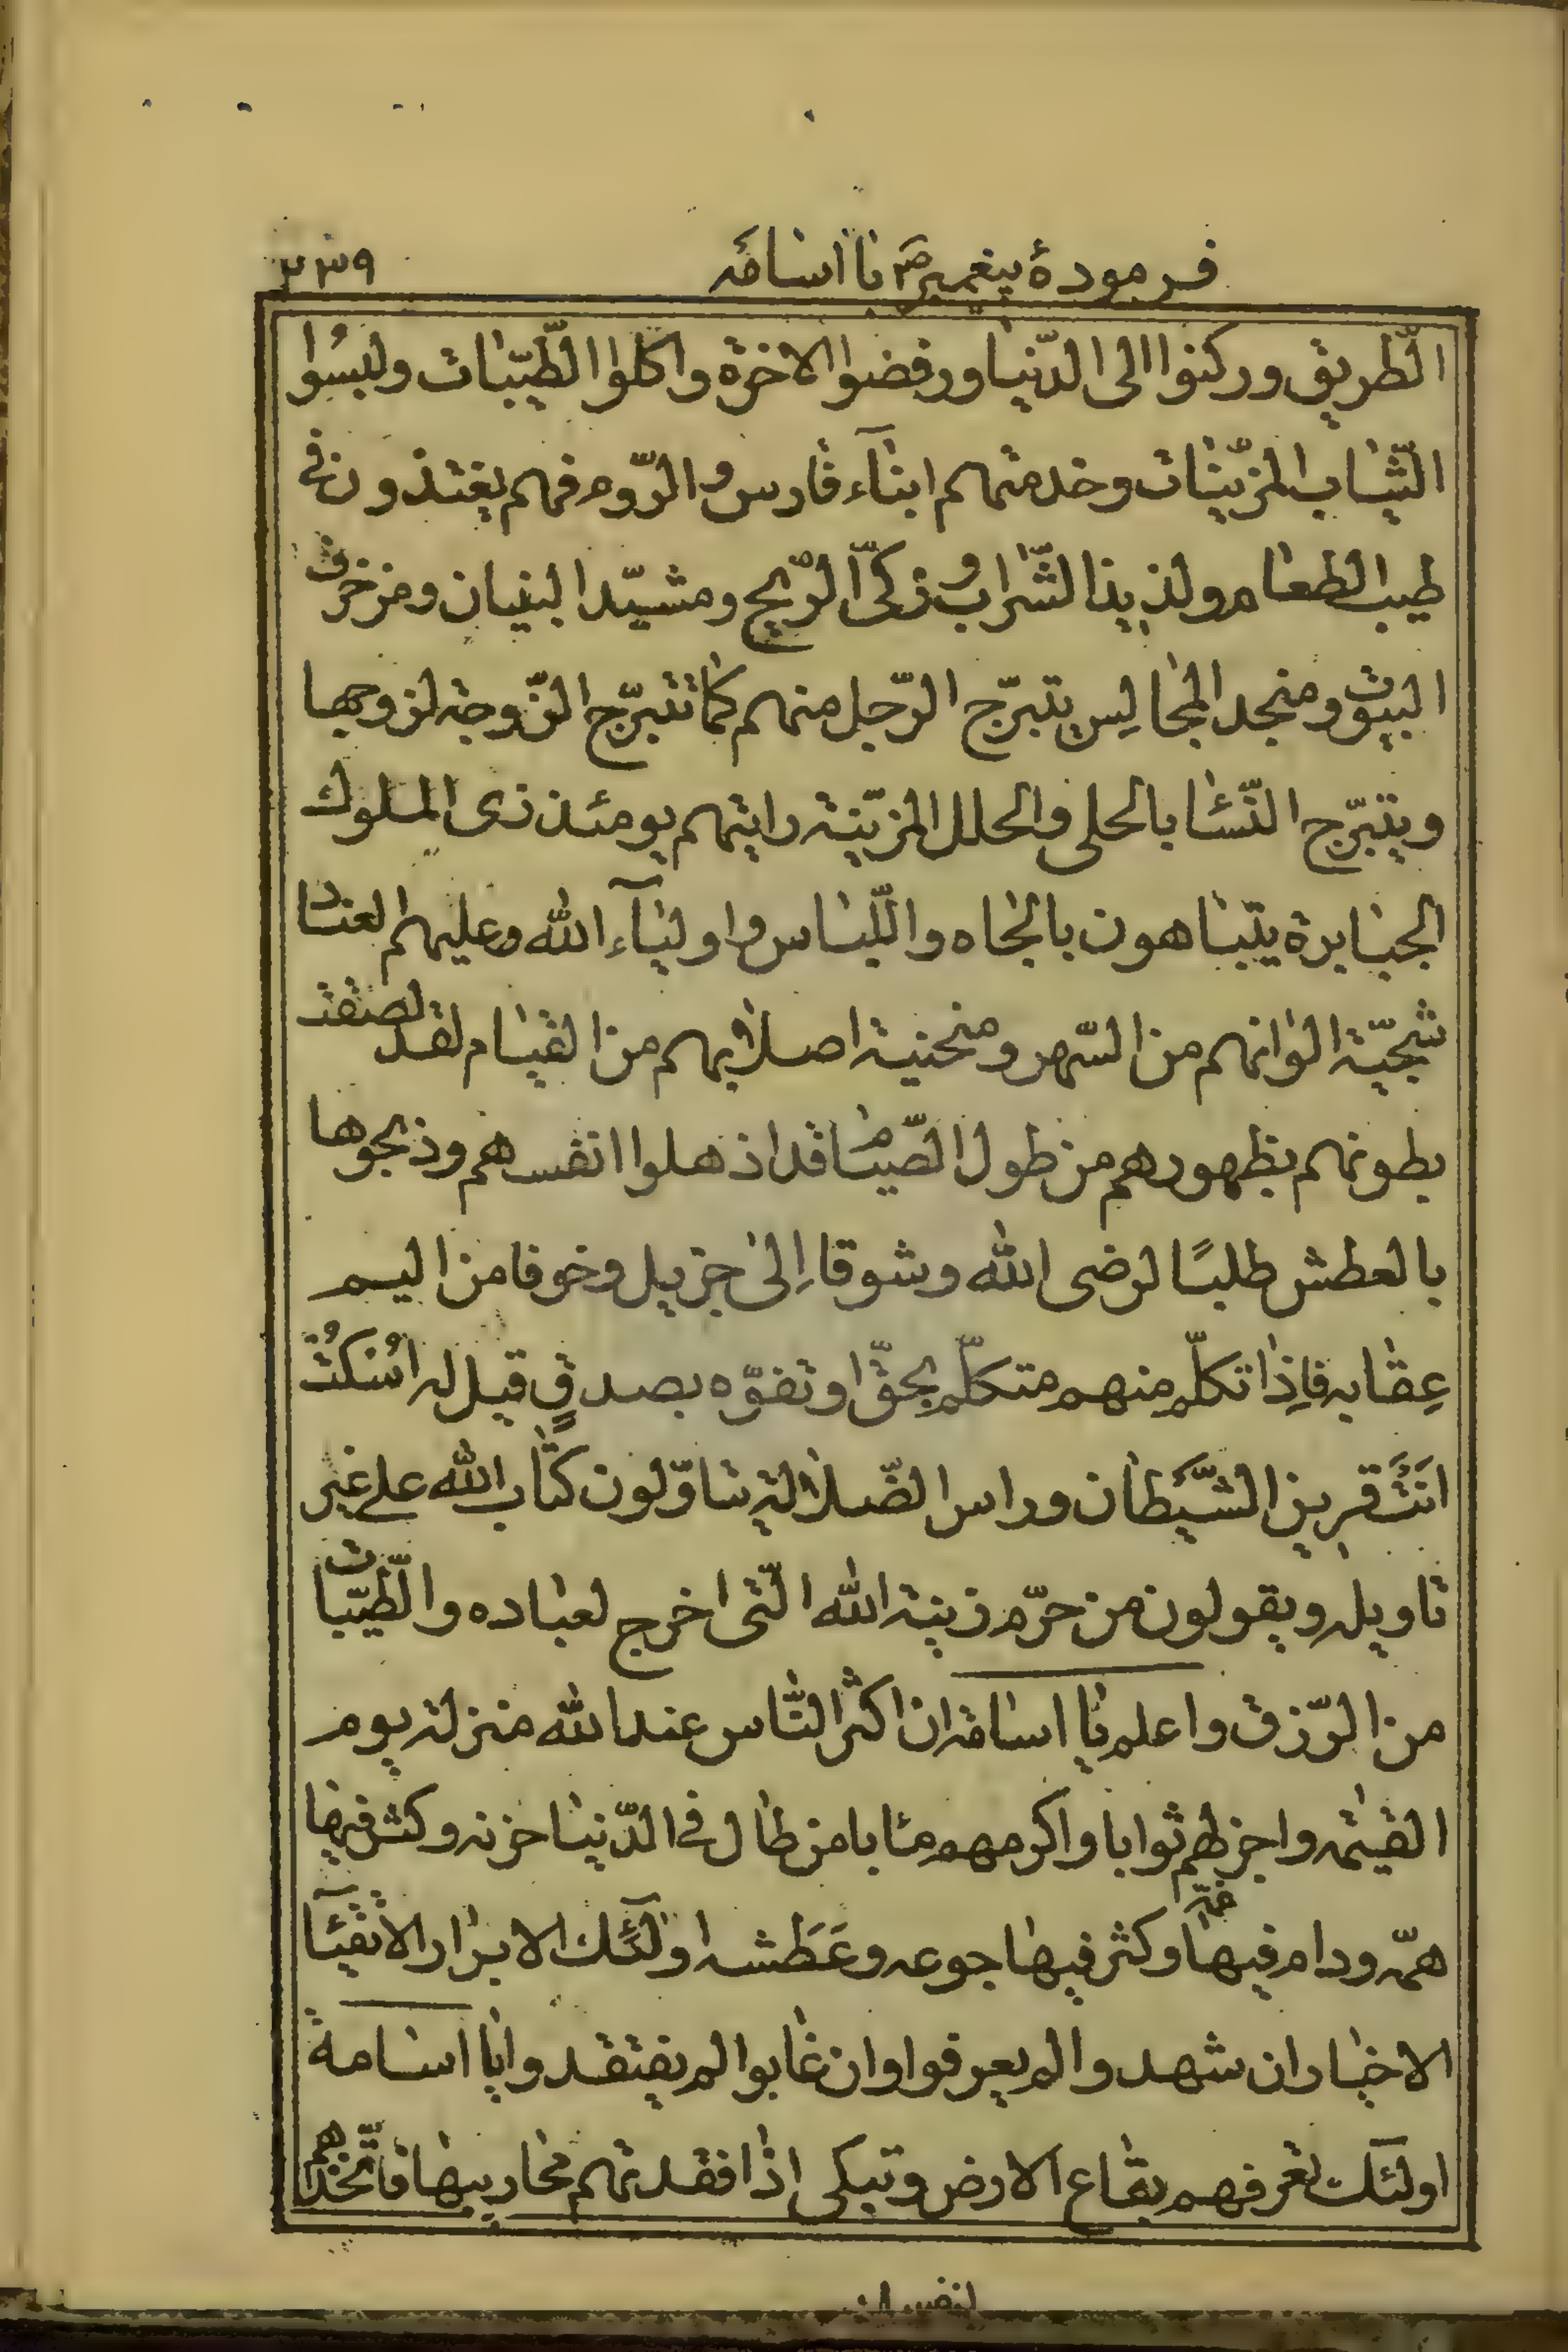 فرمودهٔ پیغمبرص با اسامَه
۲۳۹
الطّریق ورکنوا الی الدّنیا ورفضوا الاخرة واکلوا الطّیّبات ولبسُوا
الثّیاب المزیّنات وخدمتهم ابنآء فارس والرّوم فهم یغتذون فی
طیب الطعام ولذیذ الشّراب وزکیّ الرّیح ومشیّد البنیان ومزخرف
البیوت ومنجد المجالِس یتبرّج الرّجل منهم کما تتبرّج الزّوجة لزوجها
ویتبرّج النّسٰا بالحلی والحلل المزیّنة رایتهم یومئذ زی الملوك
الجبابرة یتباهون بالجاه واللّباس واولیآء الله وعلیهم العنا
شجیّة الوانهم من السّهر ومنحنیة اصلابهم من القیام لقد لصقت
بطونهم بظهورهم من طول الصّیام قد اذهلوا انفسهم وذبحوها
بالعطش طلبًا لرضی الله وشوقا إلی جزیل وخوفا من الیم
عِقابه فاِذا تکلّم منهم متکلّم بحقّ او تفوّه بصدقٍ قیل له اسُکتُ
انَتَ قرین الشّیَطان وراس الضّلالة یتاوّلون کتاب الله علی غیر
تاویله ویقولون من حرّم زینة الله الّتی اخرج لعباده والطّیّبات
من الرّزق واعلم یا اسامة ان اکثر النّاس عند الله منزلة یوم
القیٰمة واجزلهم ثوابا واکرمهم مئابا من طال فی الدّنیا حزنه وکثر فیها
همّه ودام فیها غمّه وکثر فیها جوعه وعَطَشه اولٓئك الابرار الاتقیآ
الاخیار ان شهدوا لم یعرفوا وان غابوا لم یفتقدوا یا اسامة
اولئك تعرفهم بقاع الارض وتبکی اذا فقدتهم محاریبها فاتّخذهم
لنفسك